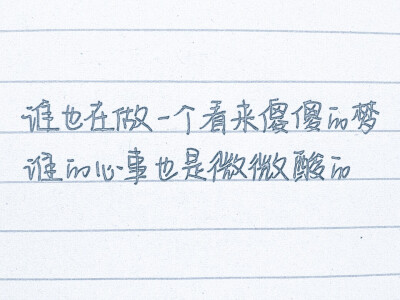 谁也在做一个看来傻傻的梦
谁的心事也是微微酸的